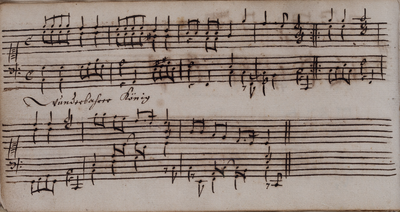 Wunderbahrer König